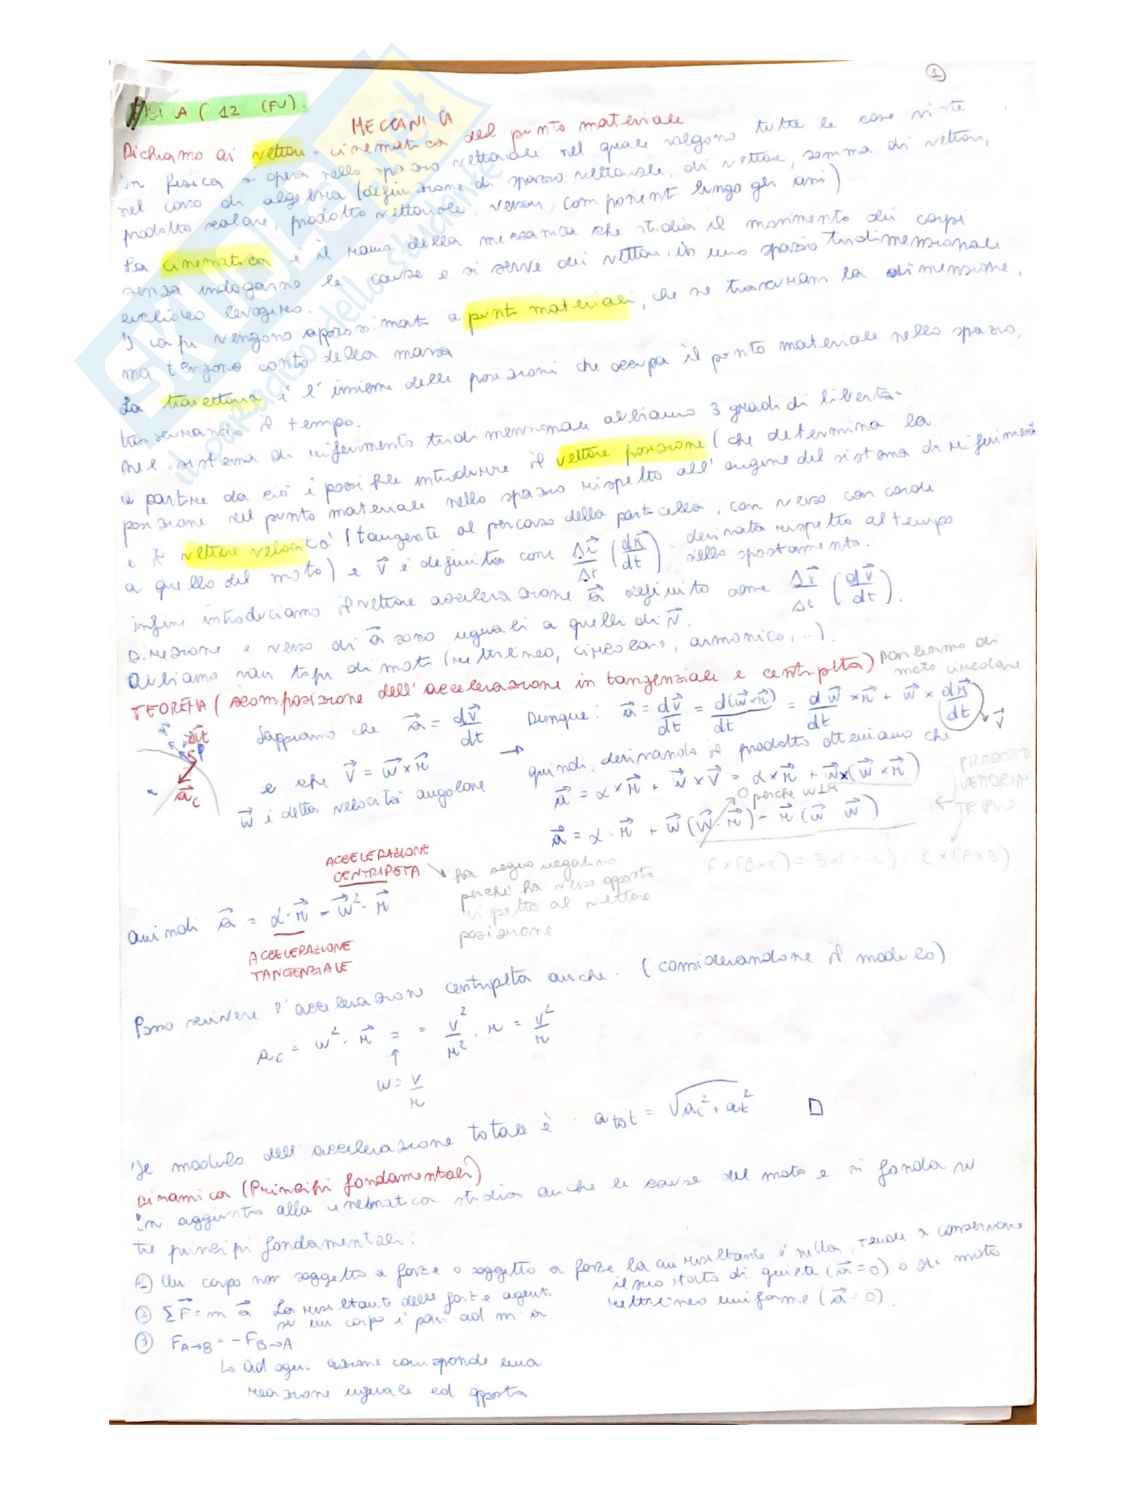 1
A (12 CFU).
MECCANICA del punto materiale
Richiamo ai vettori - cinematica
in fisica si opera nello spazio vettoriale nel quale valgono tutte le cose viste
nel corso di algebra (definizione di spazio vettoriale, di vettore, somma di vettori,
prodotto scalare, prodotto vettoriale, versori, componenti lungo gli assi)
La cinematica è il ramo della meccanica che studia il movimento dei corpi
senza indagarne le cause e si serve dei vettori in uno spazio tridimensionale
euclideo levogiro.
I corpi vengono approssimati a punti materiali, che ne trascurano la dimensione,
ma tengono conto della massa
La traiettoria è l'insieme delle posizioni che occupa il punto materiale nello spazio,
trascurando il tempo.
Nel sistema di riferimento tridimensionale abbiamo 3 gradi di libertà.
a partire da ciò è possibile introdurre il vettore posizione (che determina la
posizione del punto materiale nello spazio rispetto all'origine del sistema di riferimento
e il vettore velocità (tangente al percorso della particella, con verso concorde
a quello del moto) e v⃗ è definita come Δr⃗/Δt (dr⃗/dt) derivata rispetto al tempo
dello spostamento.
infine introduciamo il vettore accelerazione a⃗ definito come Δv⃗/Δt (dv⃗/dt).
Direzione e verso di a⃗ sono uguali a quelli di v⃗.
Abbiamo vari tipi di moto (rettilineo, circolare, armonico, ...).
TEOREMA (scomposizione dell'accelerazione in tangenziale e centripeta) Parleremo di
moto circolare
Sappiamo che a⃗ = dv⃗/dt Dunque: a⃗ = dv⃗/dt = d(w⃗×r⃗)/dt = dw⃗/dt × r⃗ + w⃗ × dr⃗/dt
v⃗
a⃗t
P
a⃗c
e che v⃗ = w⃗×r⃗ → quindi, derivando il prodotto otteniamo che
w⃗ è detta velocità angolare a⃗ = α×r⃗ + w⃗×v⃗ = α×r⃗ + w⃗×(w⃗×r⃗)
PRODOTTO
VETTORIALE
TRIPLO
0 perché w⊥r
a⃗ = α·r⃗ + w⃗(w⃗·r⃗) - r⃗(w⃗ w⃗)
ACCELERAZIONE
CENTRIPETA
ha segno negativo
perché ha verso opposto
rispetto al vettore
posizione
Quindi a⃗ = α·r⃗ - w⃗²·r⃗
ACCELERAZIONE
TANGENZIALE
Posso scrivere l'accelerazione centripeta anche: (considerandone il modulo)
ac = w²·r⃗ = = v²/r² · r = v²/r
↑
w = v/r
Il modulo dell'accelerazione totale è: atot = √ac²+at² □
Dinamica (Principi fondamentali)
In aggiunta alla cinematica studia anche le cause del moto e si fonda su
tre principi fondamentali:
① Un corpo non soggetto a forze o soggetto a forze la cui risultante è nulla, tende a conservare
il suo stato di quiete (v⃗=0) o di moto
rettilineo uniforme (a⃗=0).
② ΣF⃗ = m a⃗ La risultante delle forze agenti
su un corpo è pari ad m·a
③ FA→B = -FB→A
↳ Ad ogni azione corrisponde una
reazione uguale ed opposta
SKUOLA.net
il paradiso dello studente